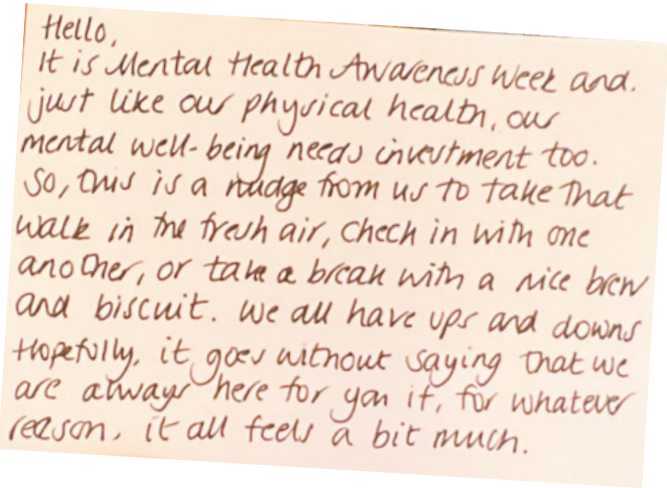 Hello,
It is Mental Health Awareness Week and.
just like our physical health, our
mental well-being needs investment too.
So, this is a nudge from us to take that
walk in the fresh air, check in with one
another, or take a break with a nice brew
and biscuit. We all have ups and downs
Hopefully, it goes without saying that we
are always here for you if, for whatever
reason, it all feels a bit much.